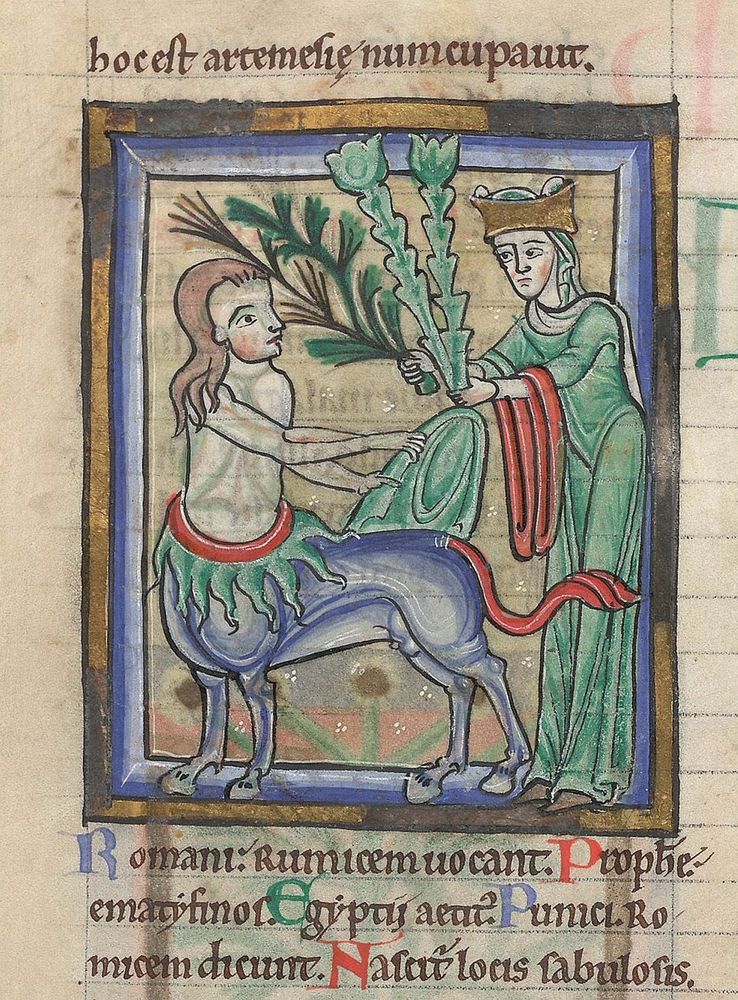 hoc est artemesię numcupauit.
Romani: Rumicem uocant. Prophe-
ematyfinos. Egyptij aetit: Punici. Ro
micem dicunt. Nascit locis sabulosis.